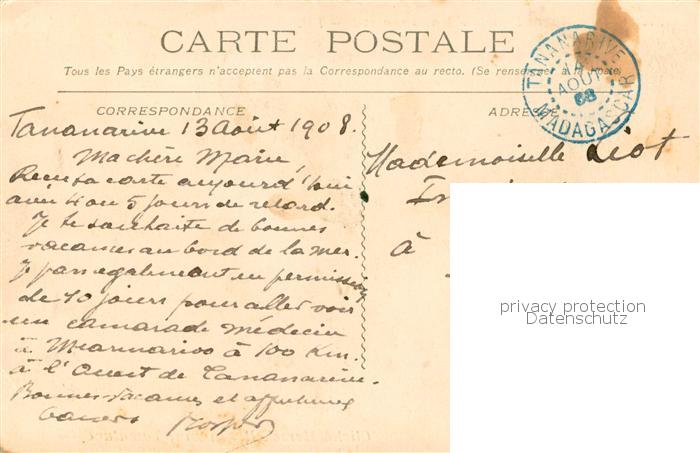 CARTE POSTALE
Tous les Pays étrangers n'acceptent pas la Correspondance au recto. (Se renseigner à la Poste)
TANANARIVE
AOUT
08
MADAGASCAR
CORRESPONDANCE
Tananarive 13 Août 1908.
Ma chère Marie,
Reçu ta carte aujourd'hui
avec 4 ou 5 jours de retard.
Je te souhaite de bonnes
vacances au bord de la mer.
Je pars également en permission
de 10 jours pour aller voir
un camarade médecin
à Miarinarivo à 100 Km.
à l'Ouest de Tananarive.
Bonnes vacances et affectueux
baisers
ADRESSE
Mademoiselle Liot
à
privacy protection
Datenschutz